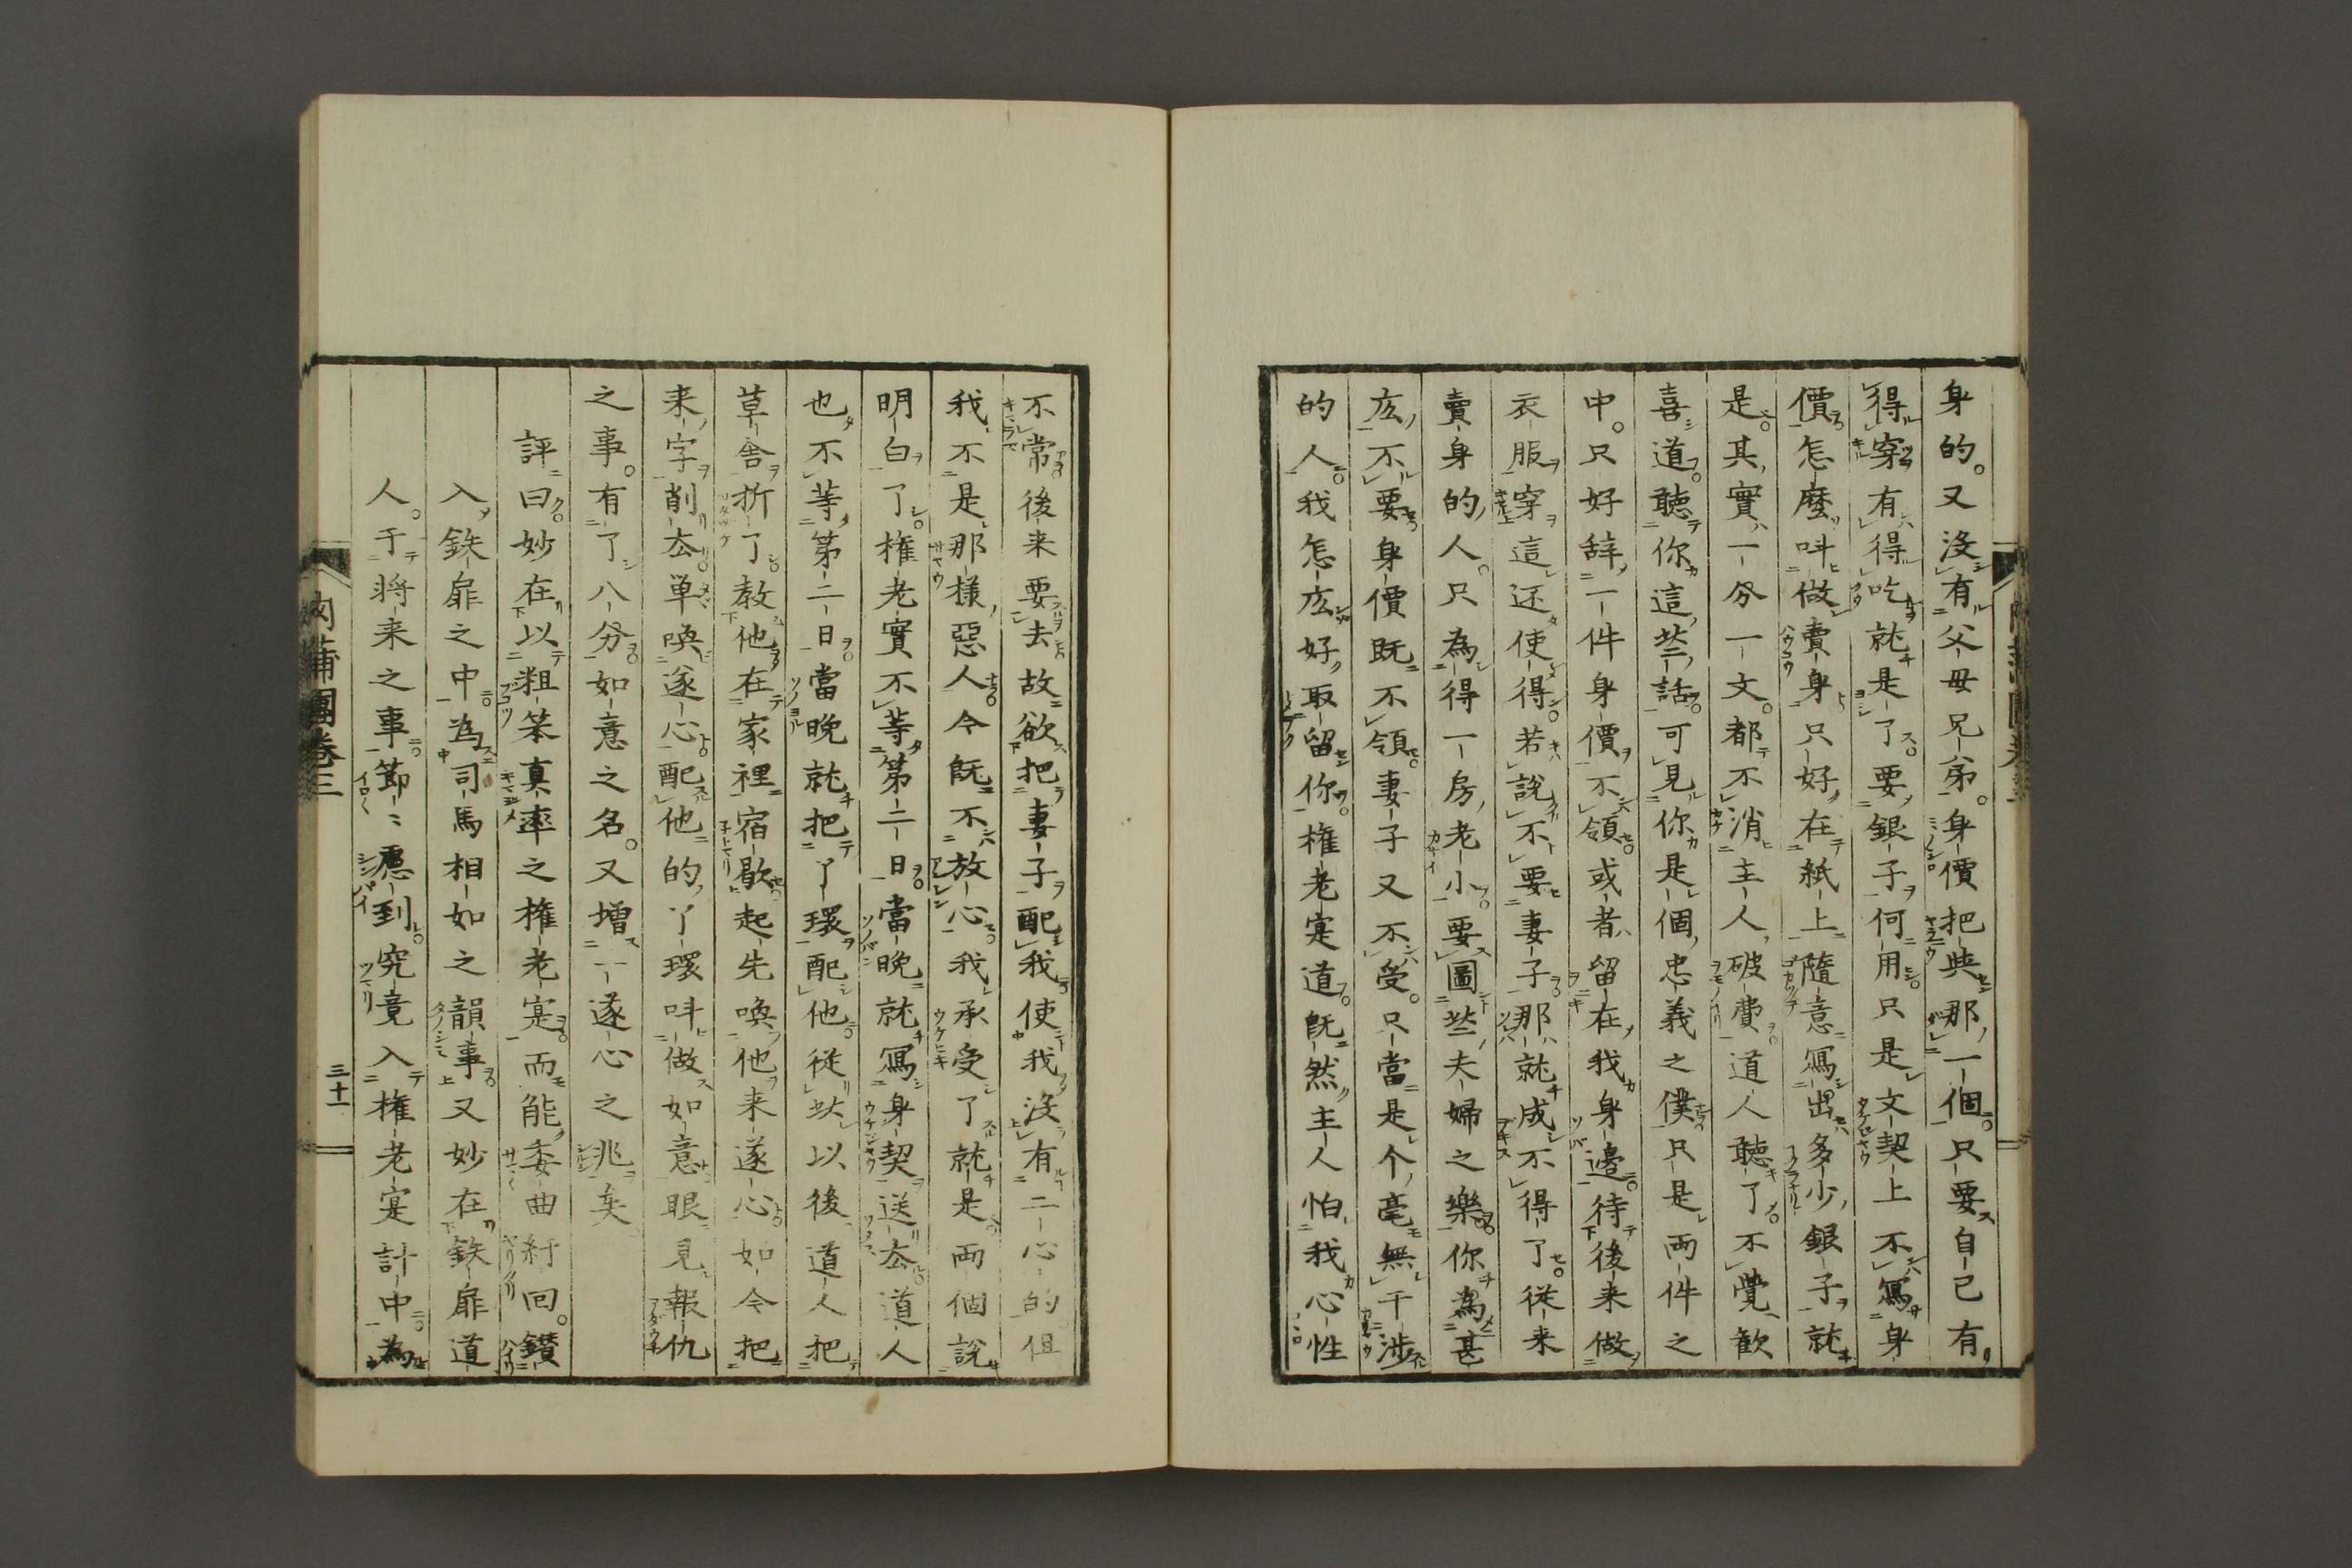 身的。又沒有父母兄弟。身價把與那一個。只要自己有
得穿有得吃就是了。要銀子何用。只是文契上不寫身
價怎麼呌做賣身。只好在紙上隨意寫出多少銀子就
是。其實一分一文。都不消主人破費。道人聽了。不覺歡
喜道。聽你這些話。可見你是個忠義之僕。只是兩件之
中。只好辞一件身價不領。或者留在我身邊。待後来做
衣服穿。這还使得。若說不要妻子。那就成不得了。従来
賣身的人。只為得一房老小。要圖些夫婦之樂。你為甚
庅不要身價既不領。妻子又不受。只當是个毫無干涉
的人。我怎庅好取留你。権老寔道。既然主人怕我心性
不常。後来要去。故欲把妻子配我。使我沒有二心的。但
我不是那樣惡人。今既不放心。我承受了就是。両個說
明白了。権老實不等第二日。當晚就寫身契送去。道人
也不等第二日。當晚就把了環配他。従此以後道人把
草舎折了。教他在家裡宿歇。起先喚他来遂心。如今把
来字削去。単喚遂心。配他的了環呌做如意。眼見報仇
之事。有了八分如意之名。又增一遂心之兆矣。
評曰。妙在以粗笨真率之権老寔。而能委曲紆回。鑚
入鉄扉之中。為司馬相如之韻事。又妙在鉄扉道
人。于将来之事。節〻慮到。究竟入権老寔計中。為
肉蒲團卷三
三十一